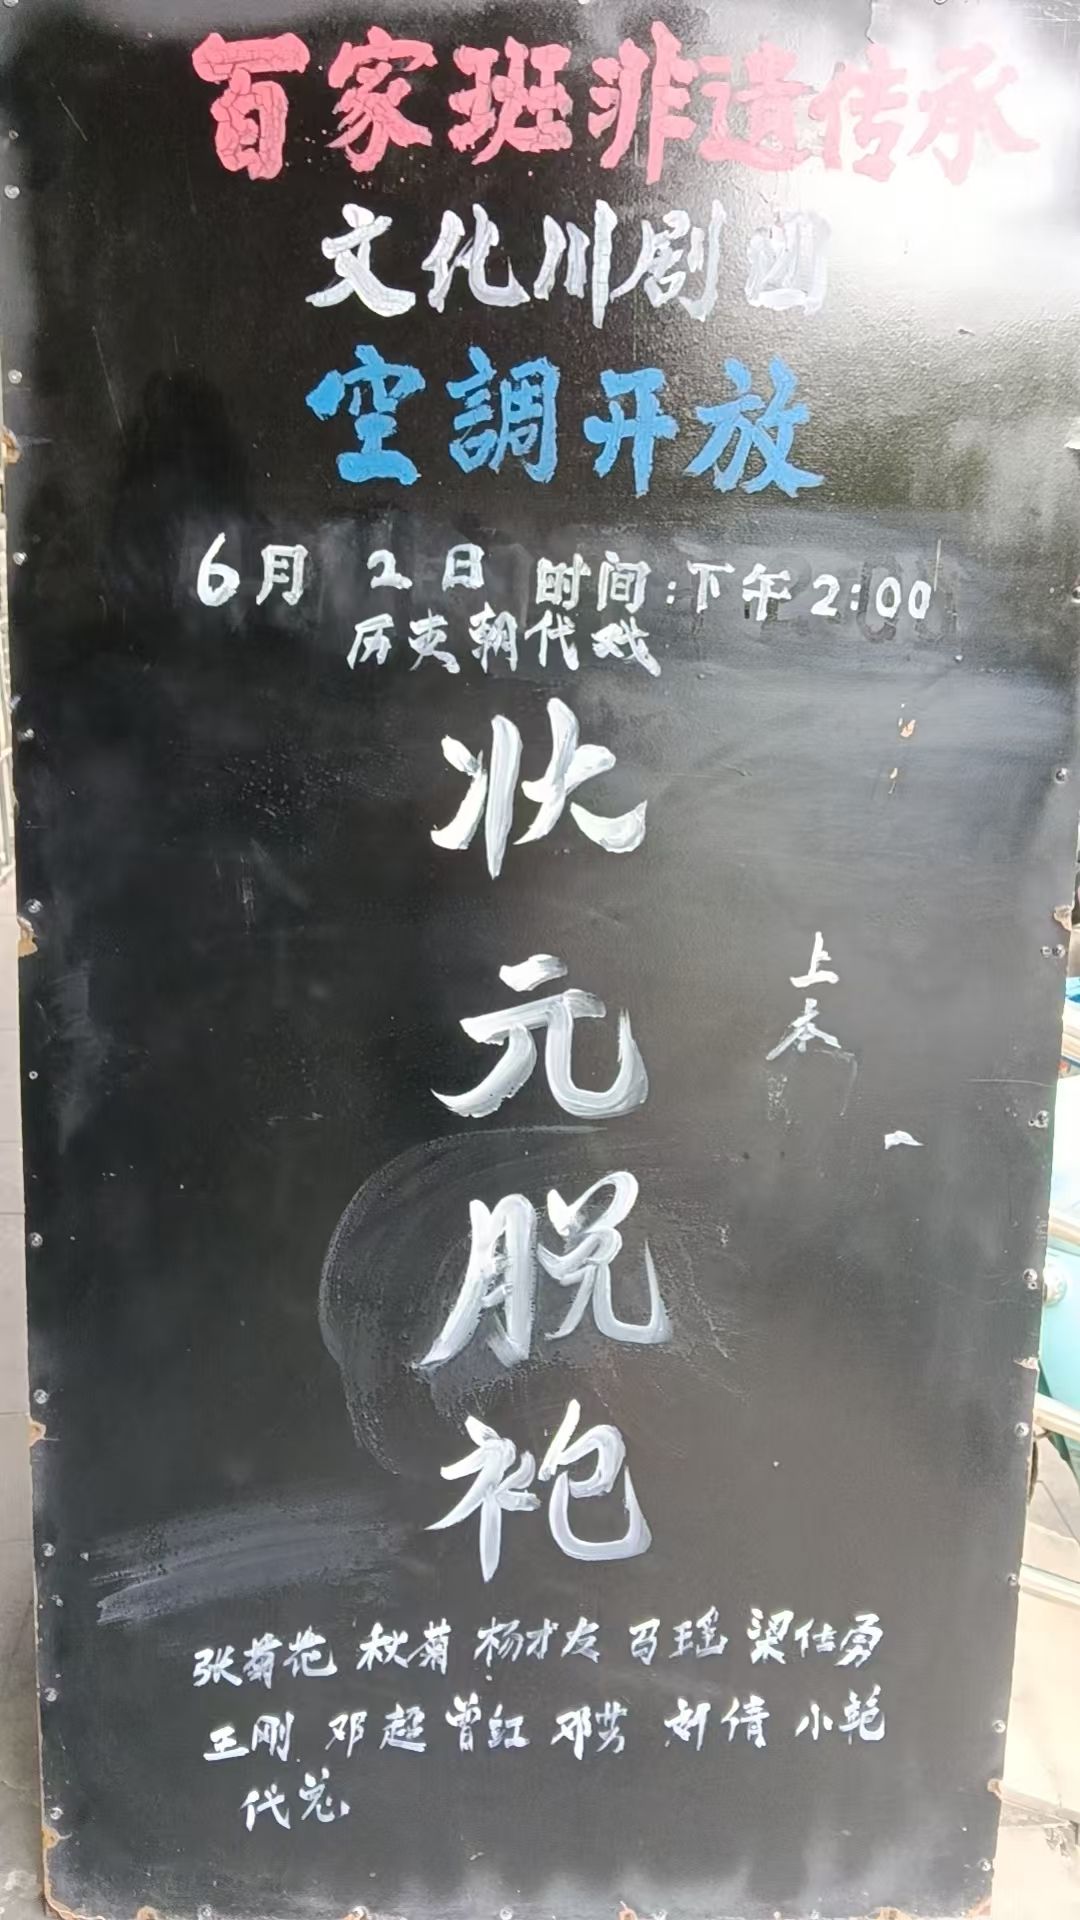 百家班非遗传承
文化川剧团
空調开放
6月 2日 时间:下午2:00
历史朝代戏
状元脱袍
上本
张菊花 秋菊 杨才友 马瑶 梁仕勇
王刚 邓超 曾红 邓芳 刘倩 小艳
代兑